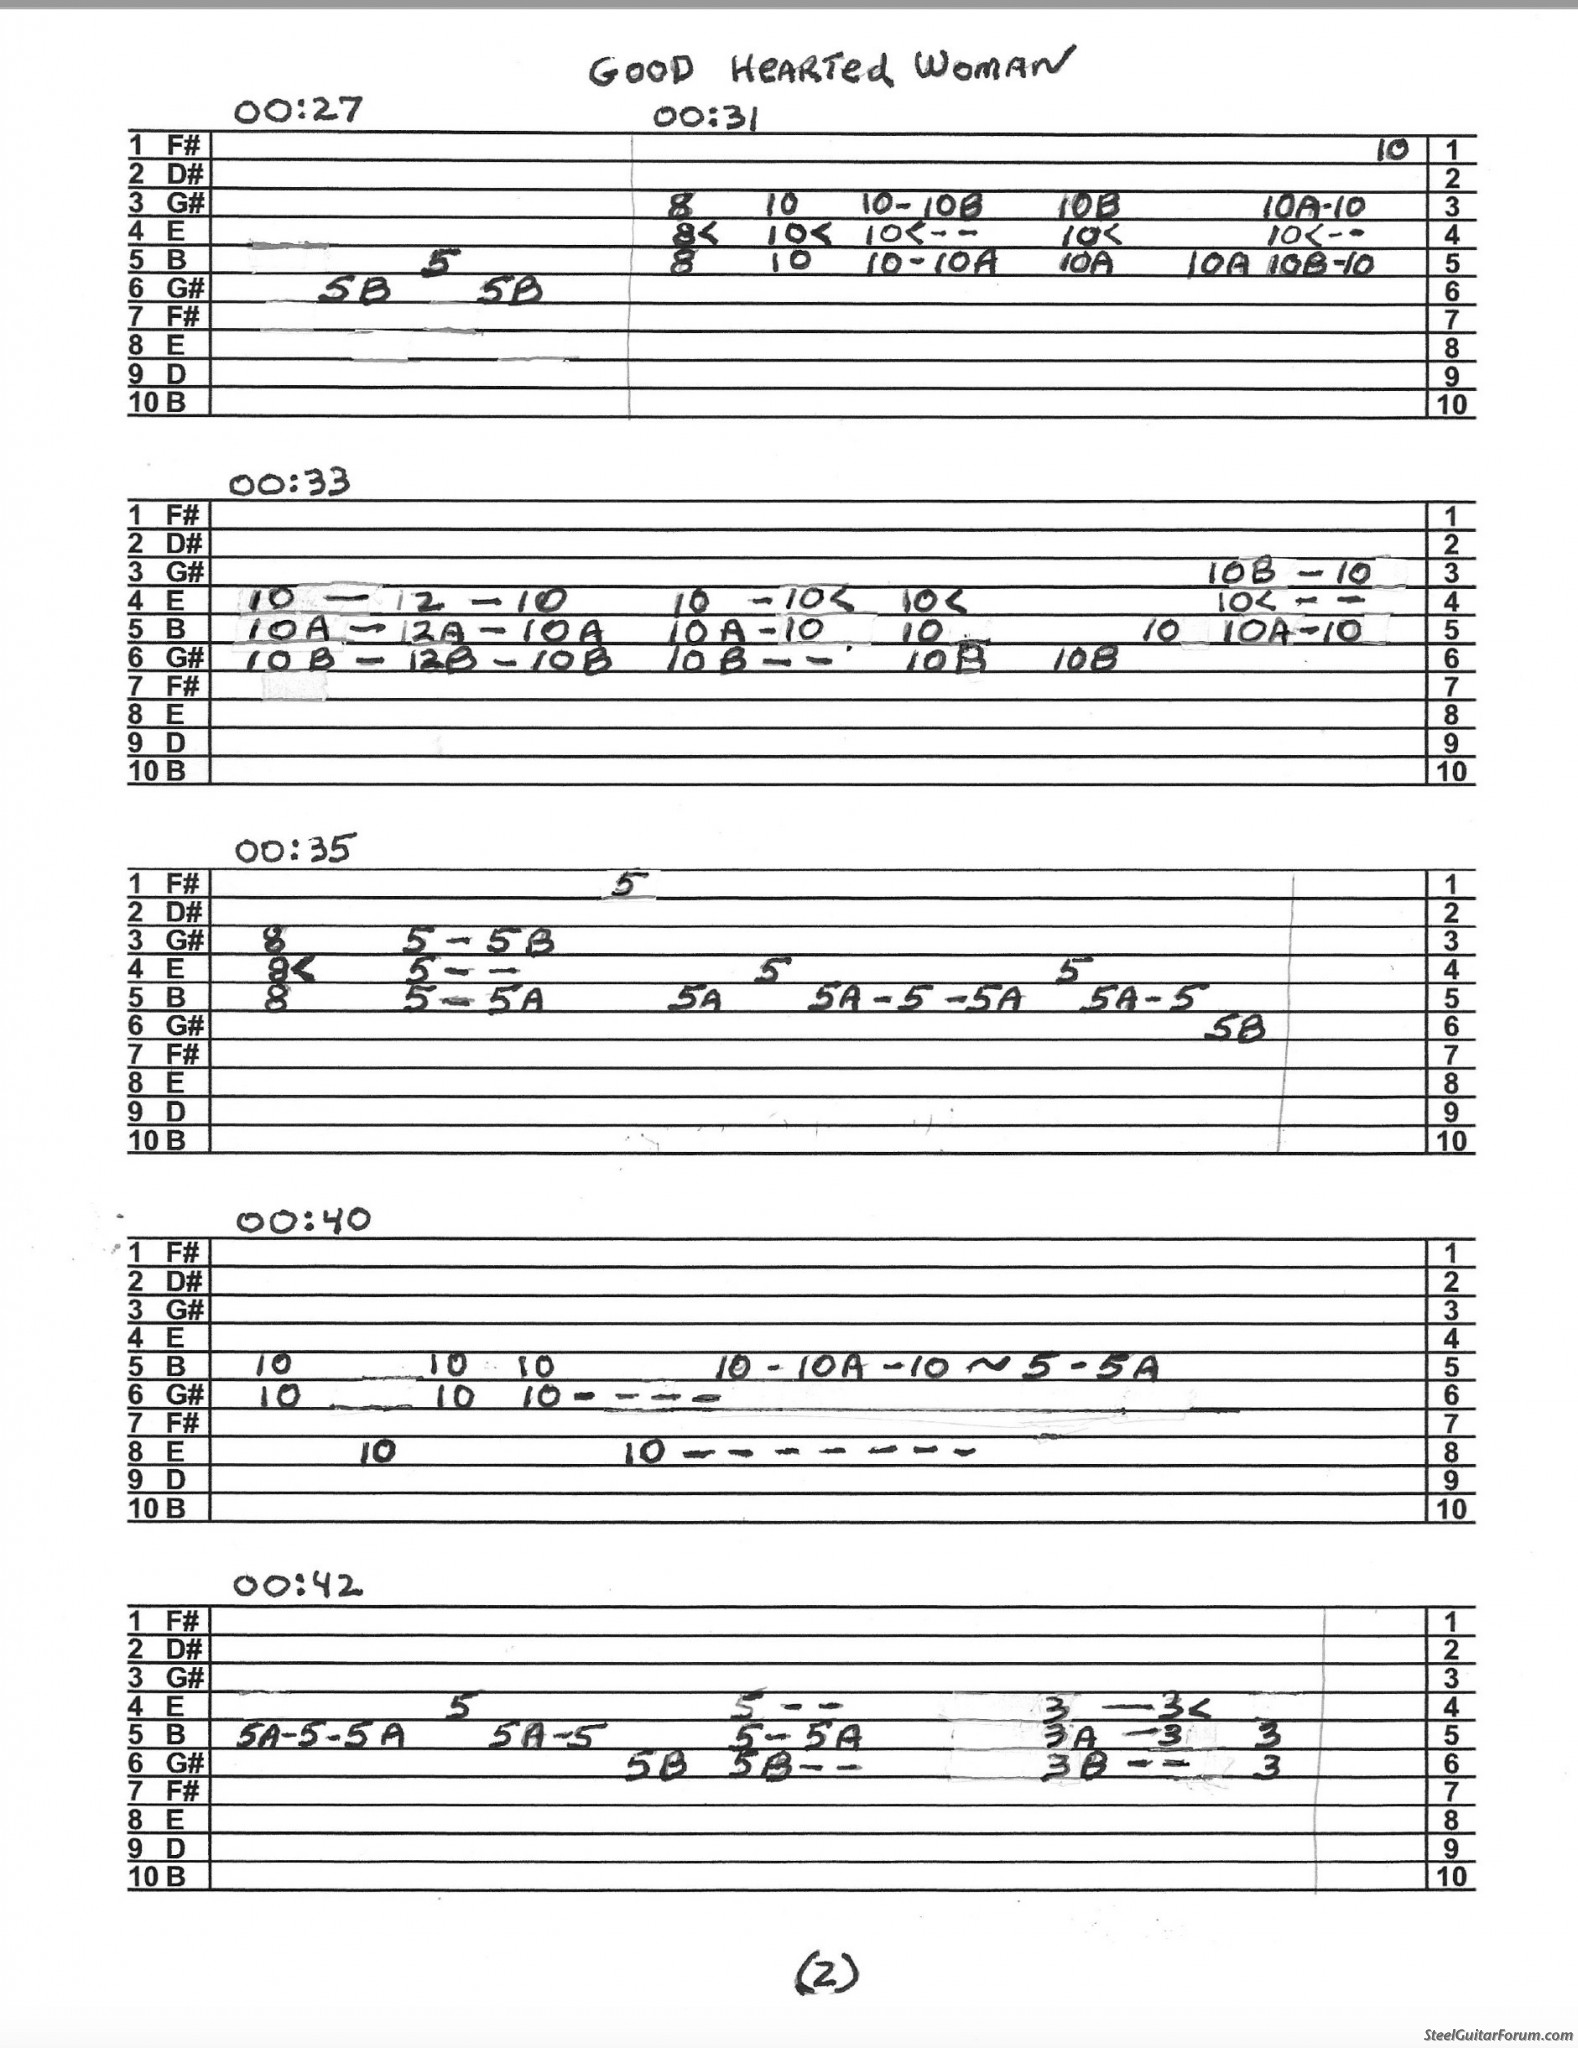 GOOD HEARTed WOMAN
00:27 00:31
1 F# 10 1
2 D# 2
3 G# 8 10 10-10B 10B 10A-10 3
4 E 8< 10< 10<-- 10< 10<-- 4
5 B 5 8 10 10-10A 10A 10A 10B-10 5
6 G# 5B 5B 6
7 F# 7
8 E 8
9 D 9
10 B 10
00:33
1 F# 1
2 D# 2
3 G# 10B - 10 3
4 E 10 - 12 - 10 10 -10< 10< 10< - - 4
5 B 10A - 12A - 10A 10A-10 10 10 10A-10 5
6 G# 10B - 12B - 10B 10B - - 10B 10B 6
7 F# 7
8 E 8
9 D 9
10 B 10
00:35
1 F# 5 1
2 D# 2
3 G# 8 5 - 5B 3
4 E 8< 5 - - 5 5 4
5 B 8 5 - 5A 5A 5A - 5 - 5A 5A - 5 5
6 G# 5B 6
7 F# 7
8 E 8
9 D 9
10 B 10
00:40
1 F# 1
2 D# 2
3 G# 3
4 E 4
5 B 10 10 10 10 - 10A - 10 ~ 5 - 5A 5
6 G# 10 10 10 - - - - 6
7 F# 7
8 E 10 10 - - - - - - - 8
9 D 9
10 B 10
00:42
1 F# 1
2 D# 2
3 G# 3
4 E 5 5 - - 3 - 3< 4
5 B 5A-5-5A 5A-5 5 - 5A 3A - 3 3 5
6 G# 5B 5B - - 3B - - 3 6
7 F# 7
8 E 8
9 D 9
10 B 10
(2)
SteelGuitarForum.com